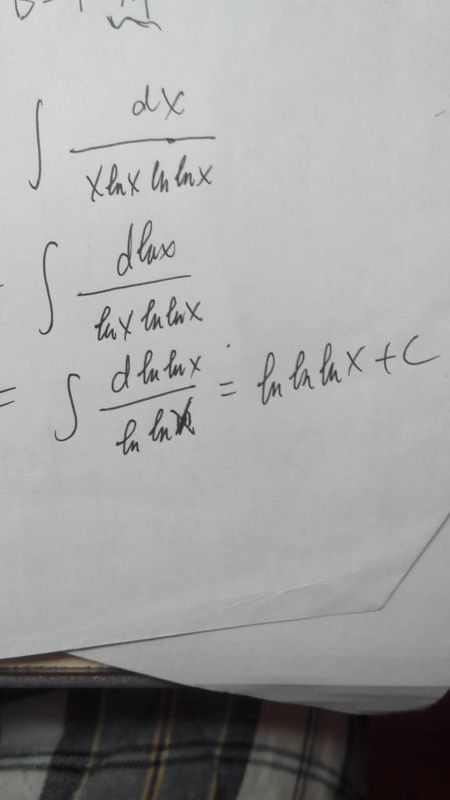 ∫ dx / (x ln x ln ln x)
= ∫ d ln x / (ln x ln ln x)
= ∫ d ln ln x / (ln ln x) = ln ln ln x + C